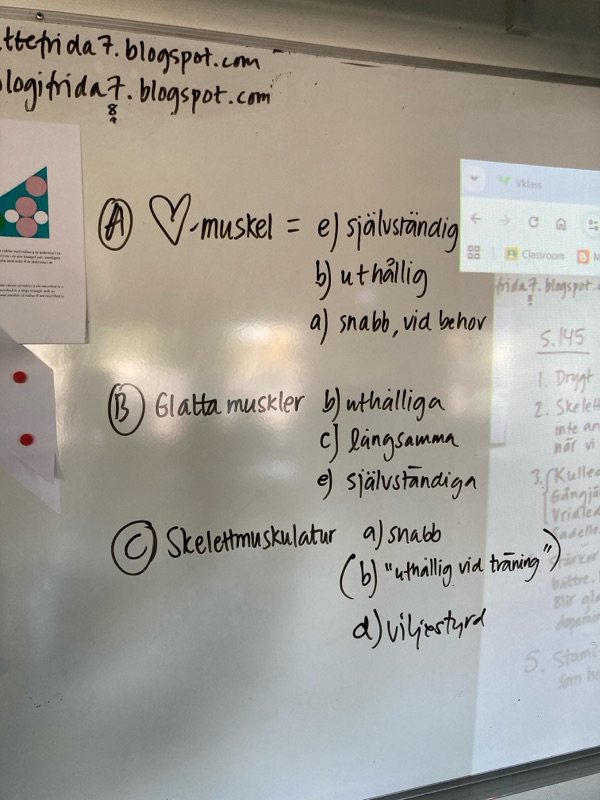 ttefrida7.blogspot.com
logifrida7.blogspot.com
8
A ♡-muskel = e) självständig
b) uthållig
a) snabb, vid behov
B Glatta muskler b) uthålliga
c) långsamma
e) självständiga
C Skelettmuskulatur a) snabb
(b) "uthållig vid träning")
d) viljestyrd
Vklass
Classroom
frida7.blogspot.c
8
S.145
1. Drygt
2. Skelett
inte an
när vi
3. Kulled
Gångjä
Vridled
Sadelle
bättre.
Blir gla
dopamin
5. Stam
som he